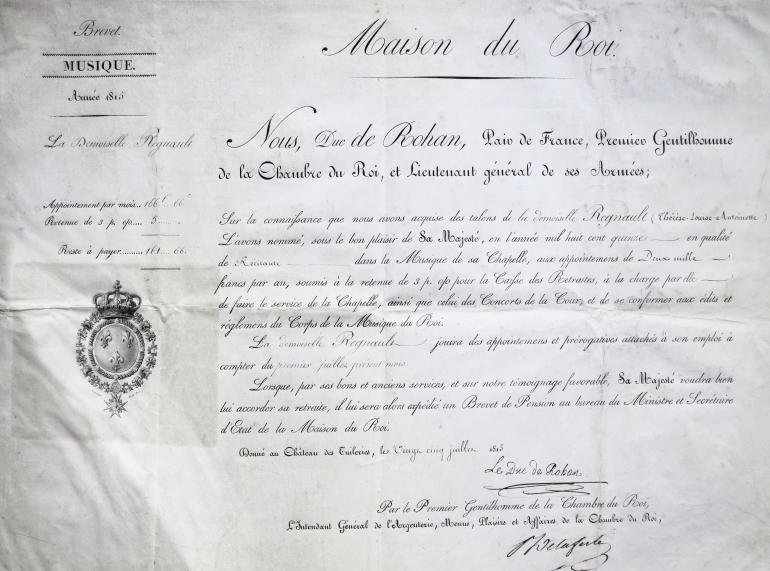 Brevet.
MUSIQUE.
Année 1815
La Demoiselle Regnault
Appointement par mois.. 166.f 66.c
Retenue de 3 p. o/o.... 5 ..... „
Reste à payer..... 161 .... 66.
Maison du Roi.
Nous, Duc de Rohan, Pair de France, Premier Gentilhomme
de la Chambre du Roi, et Lieutenant général de ses Armées;
Sur la connaissance que nous avons acquise des talens de la demoiselle Regnault (Thérèse-Louise Antoinette)
L'avons nommé, sous le bon plaisir de Sa Majesté, en l'année mil huit cent quinze en qualité
de dans la Musique de sa Chapelle, aux appointemens de Deux mille
francs par an, soumis à la retenue de 3 p. o/o pour la Caisse des Retraites, à la charge par elle
de faire le service de la Chapelle, ainsi que celui des Concerts de la Cour, et de se conformer aux édits et
règlemens du Corps de la Musique du Roi.
La demoiselle Regnault jouira des appointemens et prérogatives attachés à son emploi à
compter du premier juillet présent mois.
Lorsque, par ses bons et anciens services, et sur notre témoignage favorable, Sa Majesté voudra bien
lui accorder sa retraite, il lui sera alors expédié un Brevet de Pension au bureau du Ministre et Secrétaire
d'Etat de la Maison du Roi.
Donné au Château des Tuileries, les Vingt cinq juillet 1815
Le Duc de Rohan
Par le Premier Gentilhomme de la Chambre du Roi,
L'Intendant Général de l'Argenterie, Menus, Plaisirs et Affaires de la Chambre du Roi,